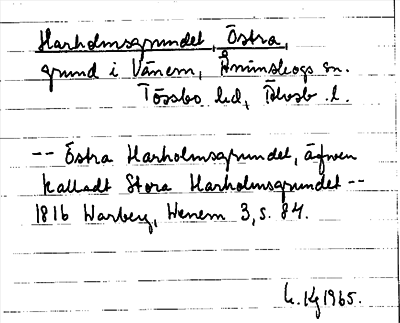 Harholmsgrundet, Östra,
grund i Vänern, Ånimskogs sn.
Tössbo hd, Älvsb. l.
-- Östra Harholmsgrundet, äfven
kalladt Stora Harholmsgrundet --
1816 Warberg, Wenern 3, s. 84.
1965.